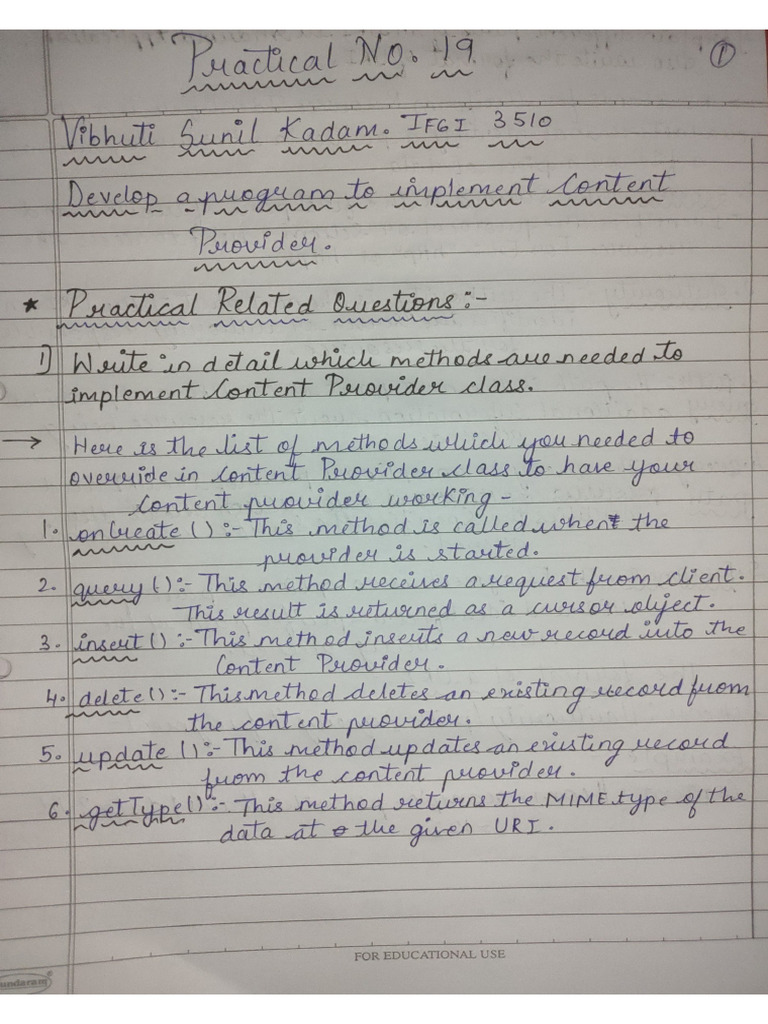 Practical No. 19
①
Vibhuti Sunil Kadam. IF6I 3510
Develop a program to implement Content
Provider.
* Practical Related Questions:-
1) Write in detail which methods are needed to
implement Content Provider class.
→ Here is the list of methods which you needed to
override in Content Provider class to have your
Content provider working -
1. onCreate () :- This method is called when the
provider is started.
2. query () :- This method receives a request from client.
This result is returned as a cursor object.
3. insert () :- This method inserts a new record into the
Content Provider.
4. delete () :- This method deletes an existing record from
the content provider.
5. update () :- This method updates an existing record
from the content provider.
6. getType () :- This method returns the MIME type of the
data at the given URI.
FOR EDUCATIONAL USE
undaram